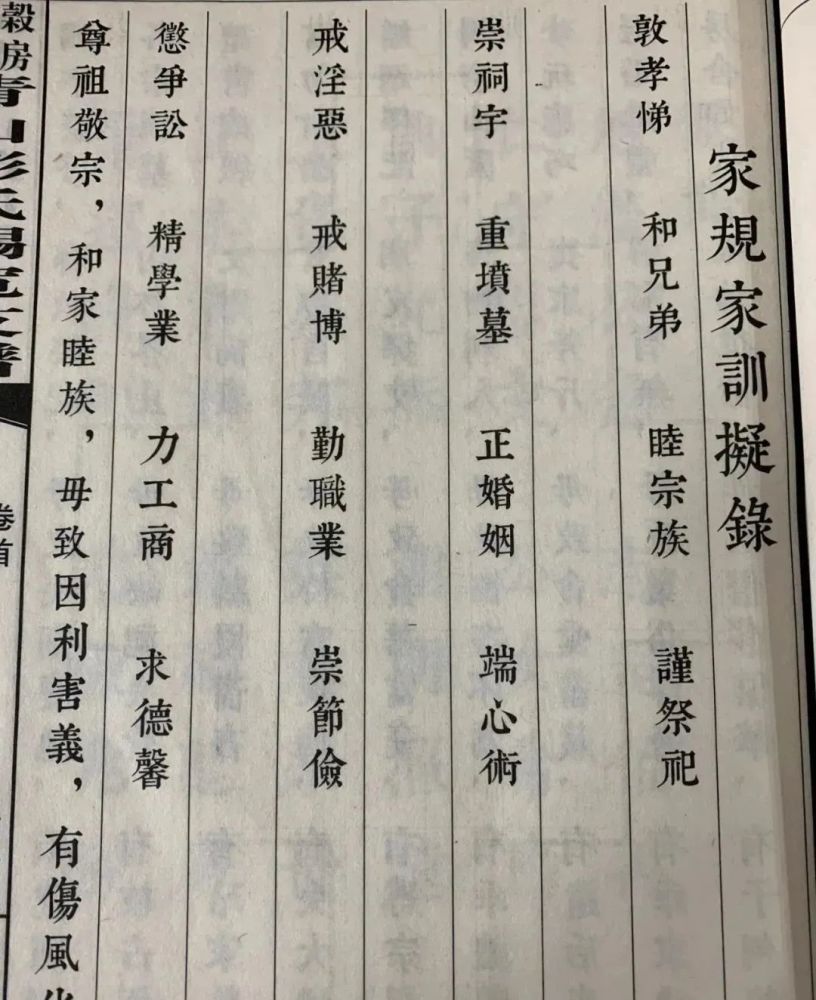 家規家訓擬錄
敦孝悌 和兄弟 睦宗族 謹祭祀
崇祠宇 重墳墓 正婚姻 端心術
戒淫惡 戒賭博 勤職業 崇節儉
懲爭訟 精學業 力工商 求德馨
尊祖敬宗，和家睦族，毋致因利害義，有傷風
穀房青山彭氏錫
卷首